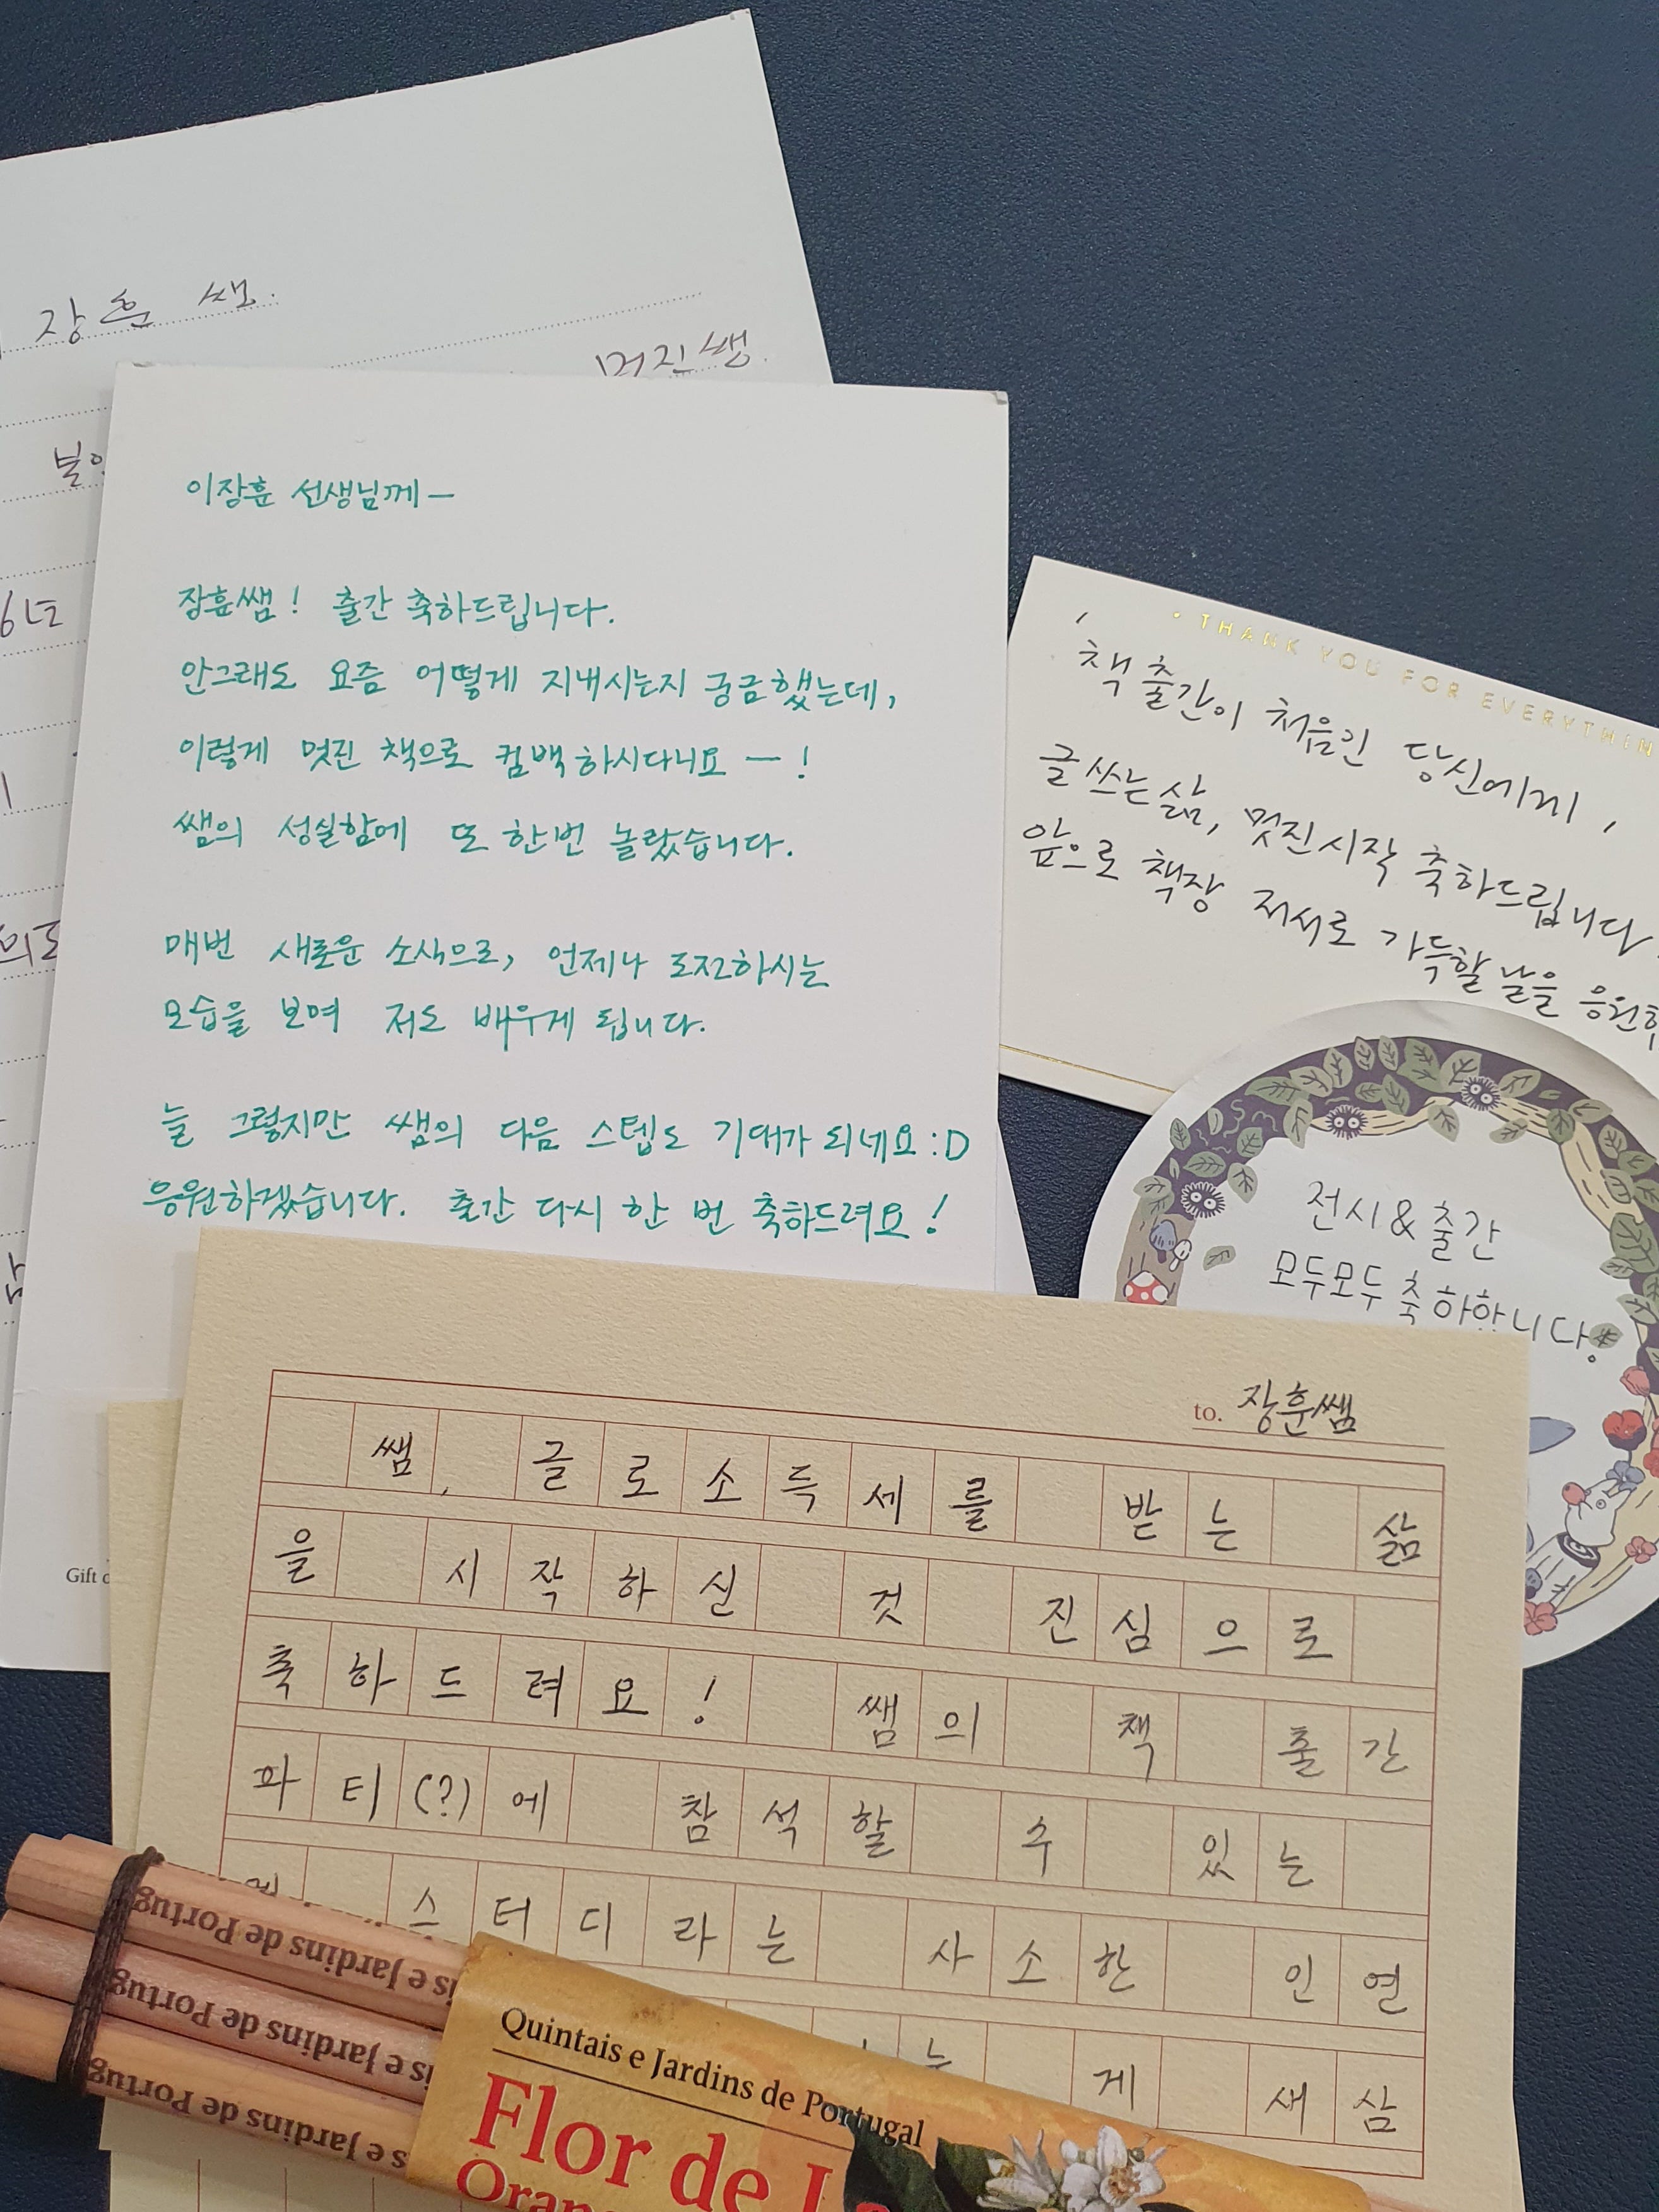 장훈 쌤.
멋진쌤.
이장훈 선생님께—
장훈쌤! 출간 축하드립니다.
안그래도 요즘 어떻게 지내시는지 궁금했는데,
이렇게 멋진 책으로 컴백하시다니요 —!
쌤의 성실함에 또 한번 놀랐습니다.
매번 새로운 소식으로, 언제나 도전하시는
모습을 보며 저도 배우게 됩니다.
늘 그렇지만 쌤의 다음 스텝도 기대가 되네요 :D
응원하겠습니다. 출간 다시 한 번 축하드려요!
THANK YOU FOR EVERYTHIN
책 출간이 처음인 당신에게,
글쓰는 삶, 멋진 시작 축하드립니다.
앞으로 책장 저서로 가득할 날을 응원하
전시&출간
모두모두 축하합니다!
to. 장훈쌤
쌤, 글로소득세를 받는 삶
을 시작하신 것 진심으로
축하드려요! 쌤의 책 출간
파티(?)에 참석할 수 있는
스터디라는 사소한 인연
게 새삼
Gift
is e Jardins de Portug
is e Jardins de Portug
is e Jardins de Portug
Quintais e Jardins de Portugal
Flor de La
Oran